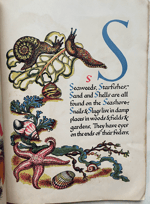 S
s
Seaweeds, Starfishes,
Sand and Shells are all
found on the Seashore.
Snails & Slugs live in damp
places in woods & fields &
gardens. They have eyes
on the ends of their feelers.